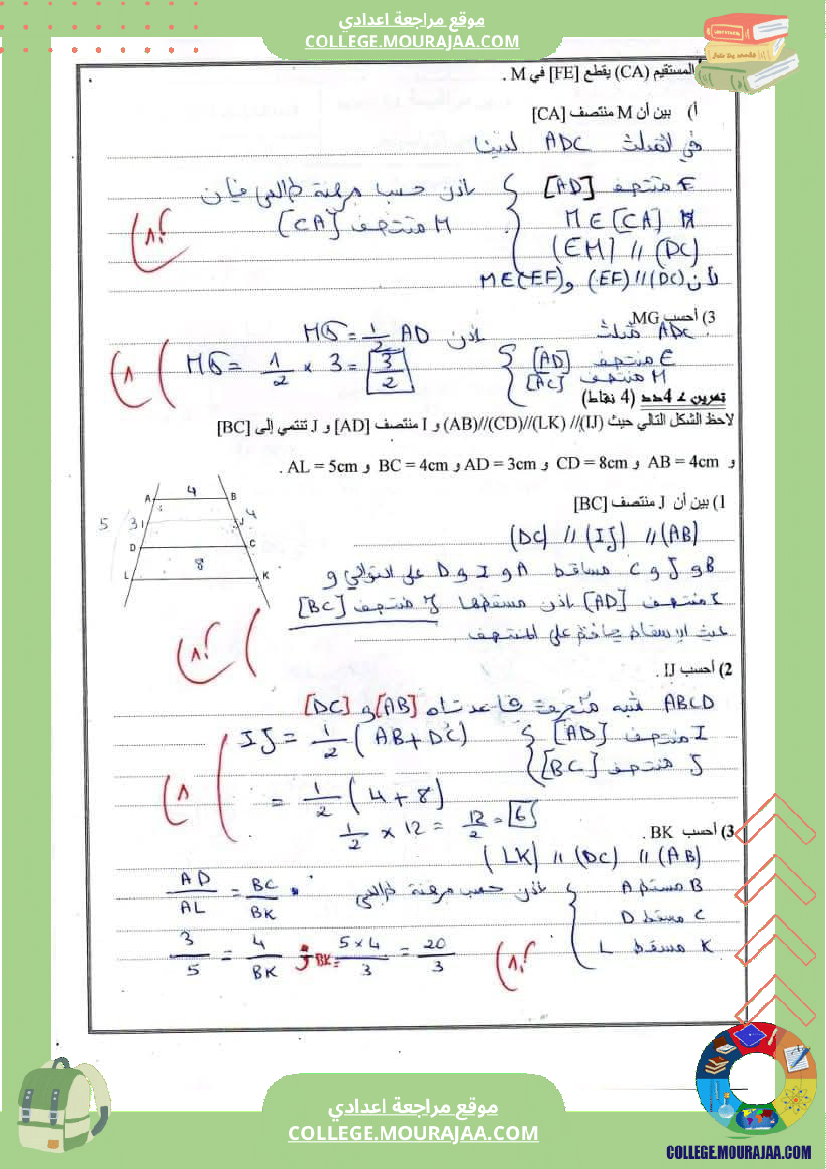 موقع مراجعة اعدادي
COLLEGE.MOURAJAA.COM
المستقيم (CA) يقطع [FE] في M .
أ) بين أن M منتصف [CA]
في المثلث ADC لدينا
E منتصف [AD] إذن حسب مبرهنة طالس فإن
M ∈ [CA] M منتصف [CA]
(EM) // (DC)
لأن (EF) // (DC) و M ∈ (EF)
3) أحسب MG.
ADC مثلث إذن MG = 1/2 AD
E منتصف [AD] MG = 1/2 × 3 = 3/2
M منتصف [AC]
تمرين عدد 4 (4 نقاط)
لاحظ الشكل التالي حيث (AB)//(CD)//(LK) //(IJ) و I منتصف [AD] و J تنتمي إلى [BC]
و AB = 4cm و CD = 8cm و AD = 3cm و BC = 4cm و AL = 5cm .
1) بين أن J منتصف [BC]
(DC) // (IJ) // (AB)
B و J و C مساقط A و I و D على التوالي و
I منتصف [AD] إذن مسقطها J منتصف [BC]
حيث الإسقاط يحافظ على المنتصف
A 4 B
5 3 I J 4
D C
8
L K
2) أحسب IJ .
ABCD شبه منحرف قاعدتاه [AB] و [DC]
I منتصف [AD] IJ = 1/2 (AB + DC)
J منتصف [BC]
= 1/2 (4 + 8)
1/2 × 12 = 12/2 = 6
3) أحسب BK .
(LK) // (DC) // (AB)
B مسقط A إذن حسب مبرهنة طالس AD/AL = BC/BK
C مسقط D
K مسقط L 3/5 = 4/BK BK = 5×4/3 = 20/3
موقع مراجعة اعدادي
COLLEGE.MOURAJAA.COM
COLLEGE.MOURAJAA.COM